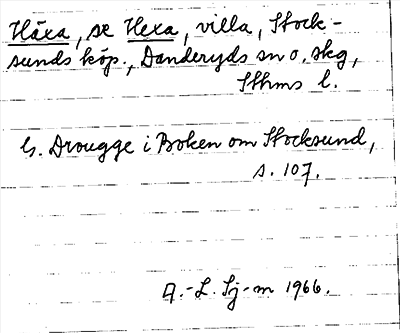 Häxa, se Hexa, villa, Stock-
sunds köp., Danderyds sn o. skg,
Sthms l.
G. Drougge i Boken om Stocksund,
s. 107.
A.-L. Sj-m 1966.